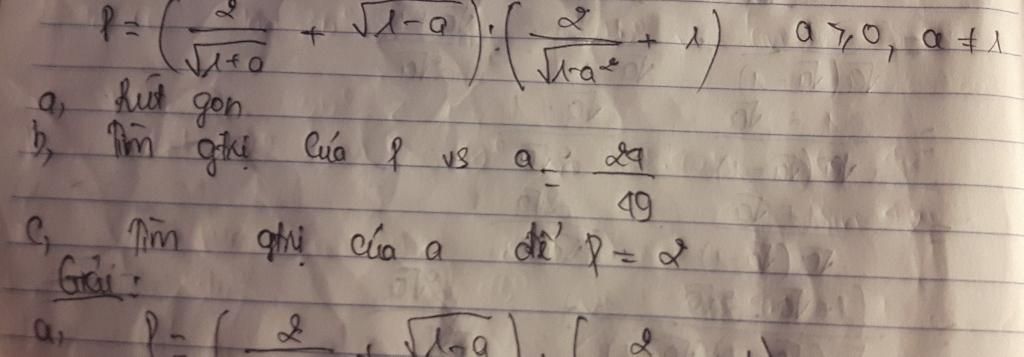 P = (2/√1+a + √1-a) : (2/√1-a² + 1) a ≥ 0, a ≠ 1
a, Rút gọn
b, Tìm gtrị của P vs a = 24/49
c, Tìm gtrị của a để P = 2
Giải:
a, P = (2 + √1-a) : (2